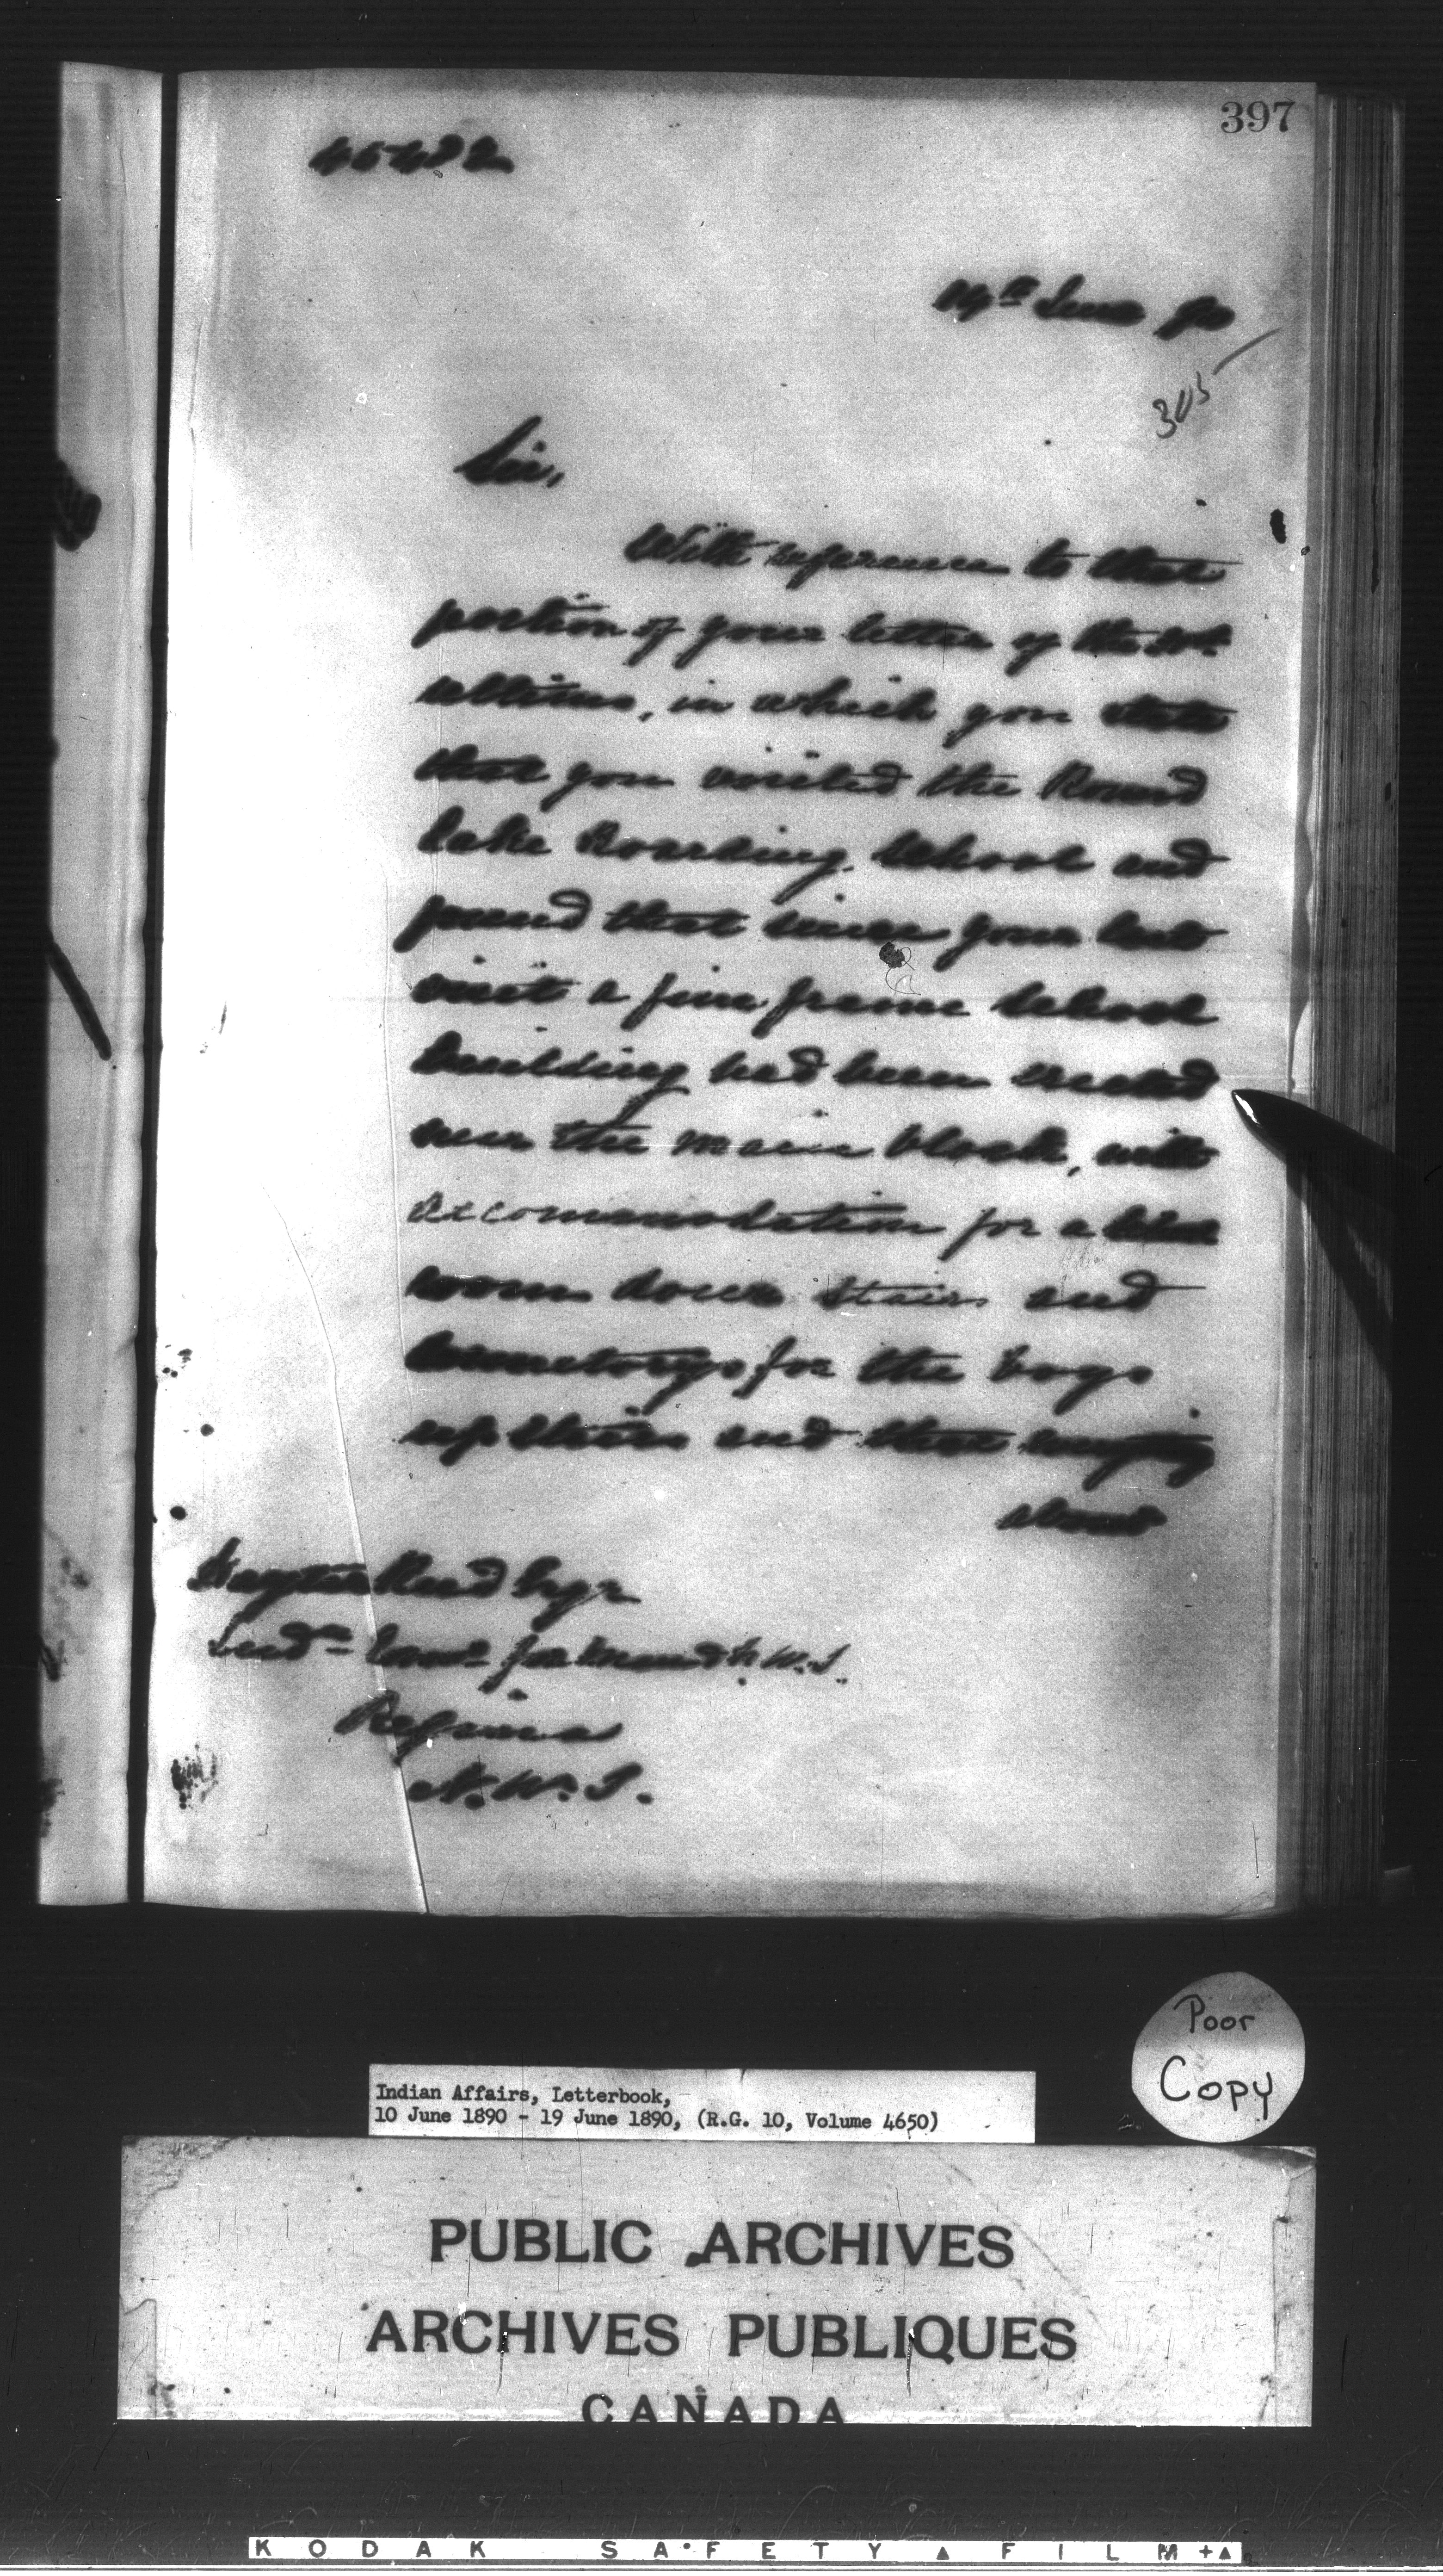 397
45482
19th June 90
Sir,
With reference to that
portion of your letter of the
ultimo, in which you state
that you visited the Round
Lake Boarding School and
found that since your last
visit a fine frame School
building had been erected
near the main block, with
accommodation for a
room down stairs and
dormitorys for the boys
up stairs and that
about
Hayter Reed Esqr
Indn Comr for Man & N.W.T.
Regina
N.W.T.
Poor
Copy
Indian Affairs, Letterbook,
10 June 1890 - 19 June 1890, (R.G. 10, Volume 4650)
PUBLIC ARCHIVES
ARCHIVES PUBLIQUES
CANADA
KODAK SAFETY FILM